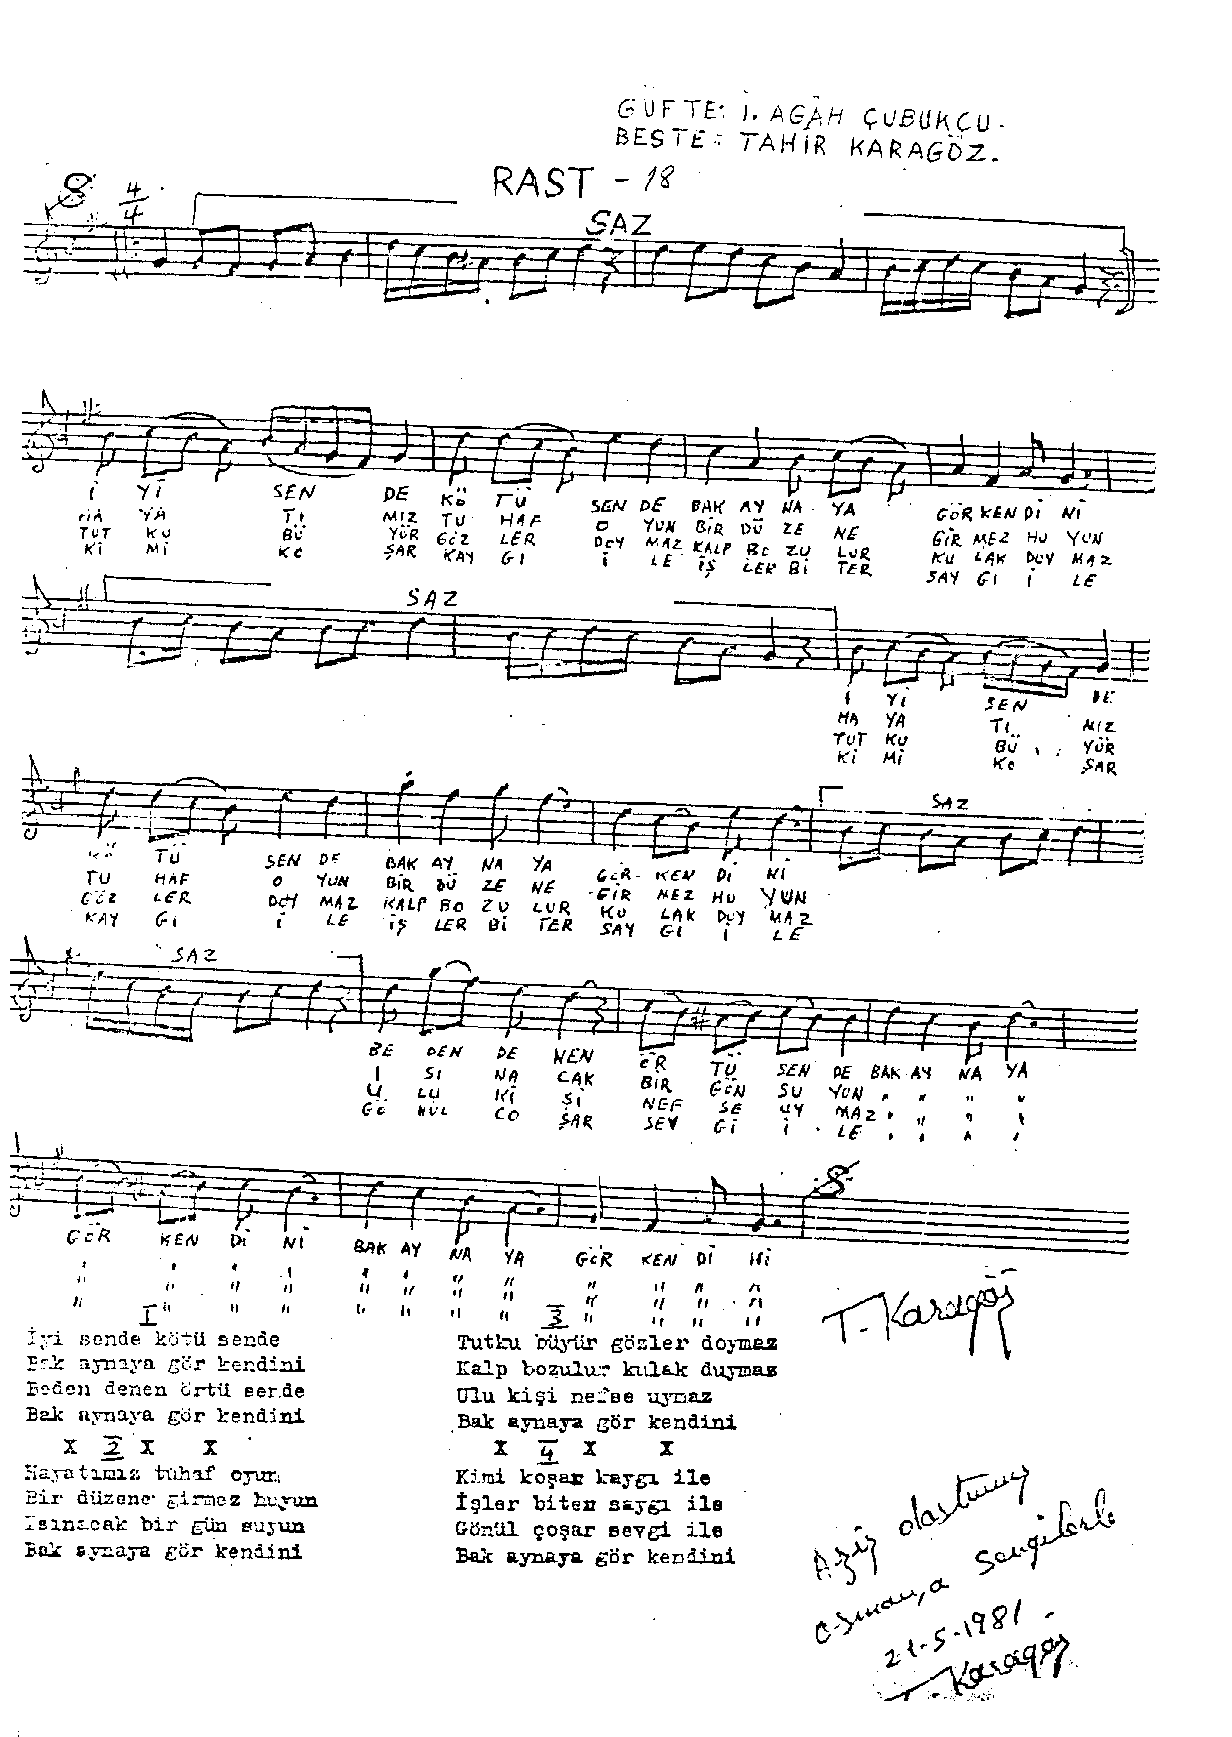 GÜFTE: İ. AGÂH ÇUBUKÇU.
BESTE: TAHİR KARAGÖZ.
RAST - 18
4/4
SAZ
İ Yİ SEN DE KÖ TÜ SEN DE BAK AY NA YA GÖR KEN Dİ Nİ
HA YA TI MIZ TU HAF O YUN BİR DÜ ZE NE GİR MEZ HU YUN
TUT KU BÜ YÜR GÖZ LER DOY MAZ KALP BO ZU LUR KU LAK DUY MAZ
Kİ Mİ KO ŞAR KAY GI İ LE İŞ LER Bİ TER SAY GI İ LE
SAZ
İ Yİ SEN DE
HA YA TI MIZ
TUT KU BÜ YÜR
Kİ Mİ KO ŞAR
SAZ
KÖ TÜ SEN DE BAK AY NA YA GÖR KEN Dİ Nİ
TU HAF O YUN BİR DÜ ZE NE GİR MEZ HU YUN
GÖZ LER DOY MAZ KALP BO ZU LUR KU LAK DUY MAZ
KAY GI İ LE İŞ LER Bİ TER SAY GI İ LE
SAZ
BE DEN DE NEN ÖR TÜ SEN DE BAK AY NA YA
I SI NA CAK BİR GÜN SU YUN " " " "
U LU Kİ Şİ NEF SE UY MAZ " " " "
GÖ NÜL ÇO ŞAR SEV Gİ İ LE " " " "
GÖR KEN Dİ Nİ BAK AY NA YA GÖR KEN Dİ Nİ
" " " " " " " " " " " "
" " " " " " " " " " " "
" " " " " " " " " " " "
T. Karagöz
I
İyi sende kötü sende
Bak aynaya gör kendini
Beden denen örtü sende
Bak aynaya gör kendini
X 2 X X
Hayatımız tuhaf oyun
Bir düzene girmez huyun
Isınacak bir gün suyun
Bak aynaya gör kendini
3
Tutku büyür gözler doymaz
Kalp bozulur kulak duymaz
Ulu kişi nefse uymaz
Bak aynaya gör kendini
X 4 X X
Kimi koşar kaygı ile
İşler biten saygı ile
Gönül çoşar sevgi ile
Bak aynaya gör kendini
Aziz dostum
Osman'a sevgilerle
21-5-1981.
T. Karagöz